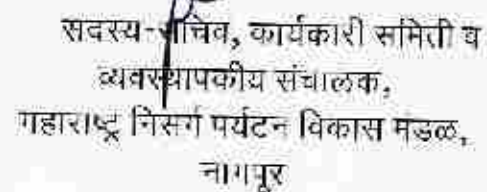 सदस्य-सचिव, कार्यकारी समिती व
व्यवस्थापकीय संचालक,
महाराष्ट्र निसर्ग पर्यटन विकास मंडळ,
नागपूर